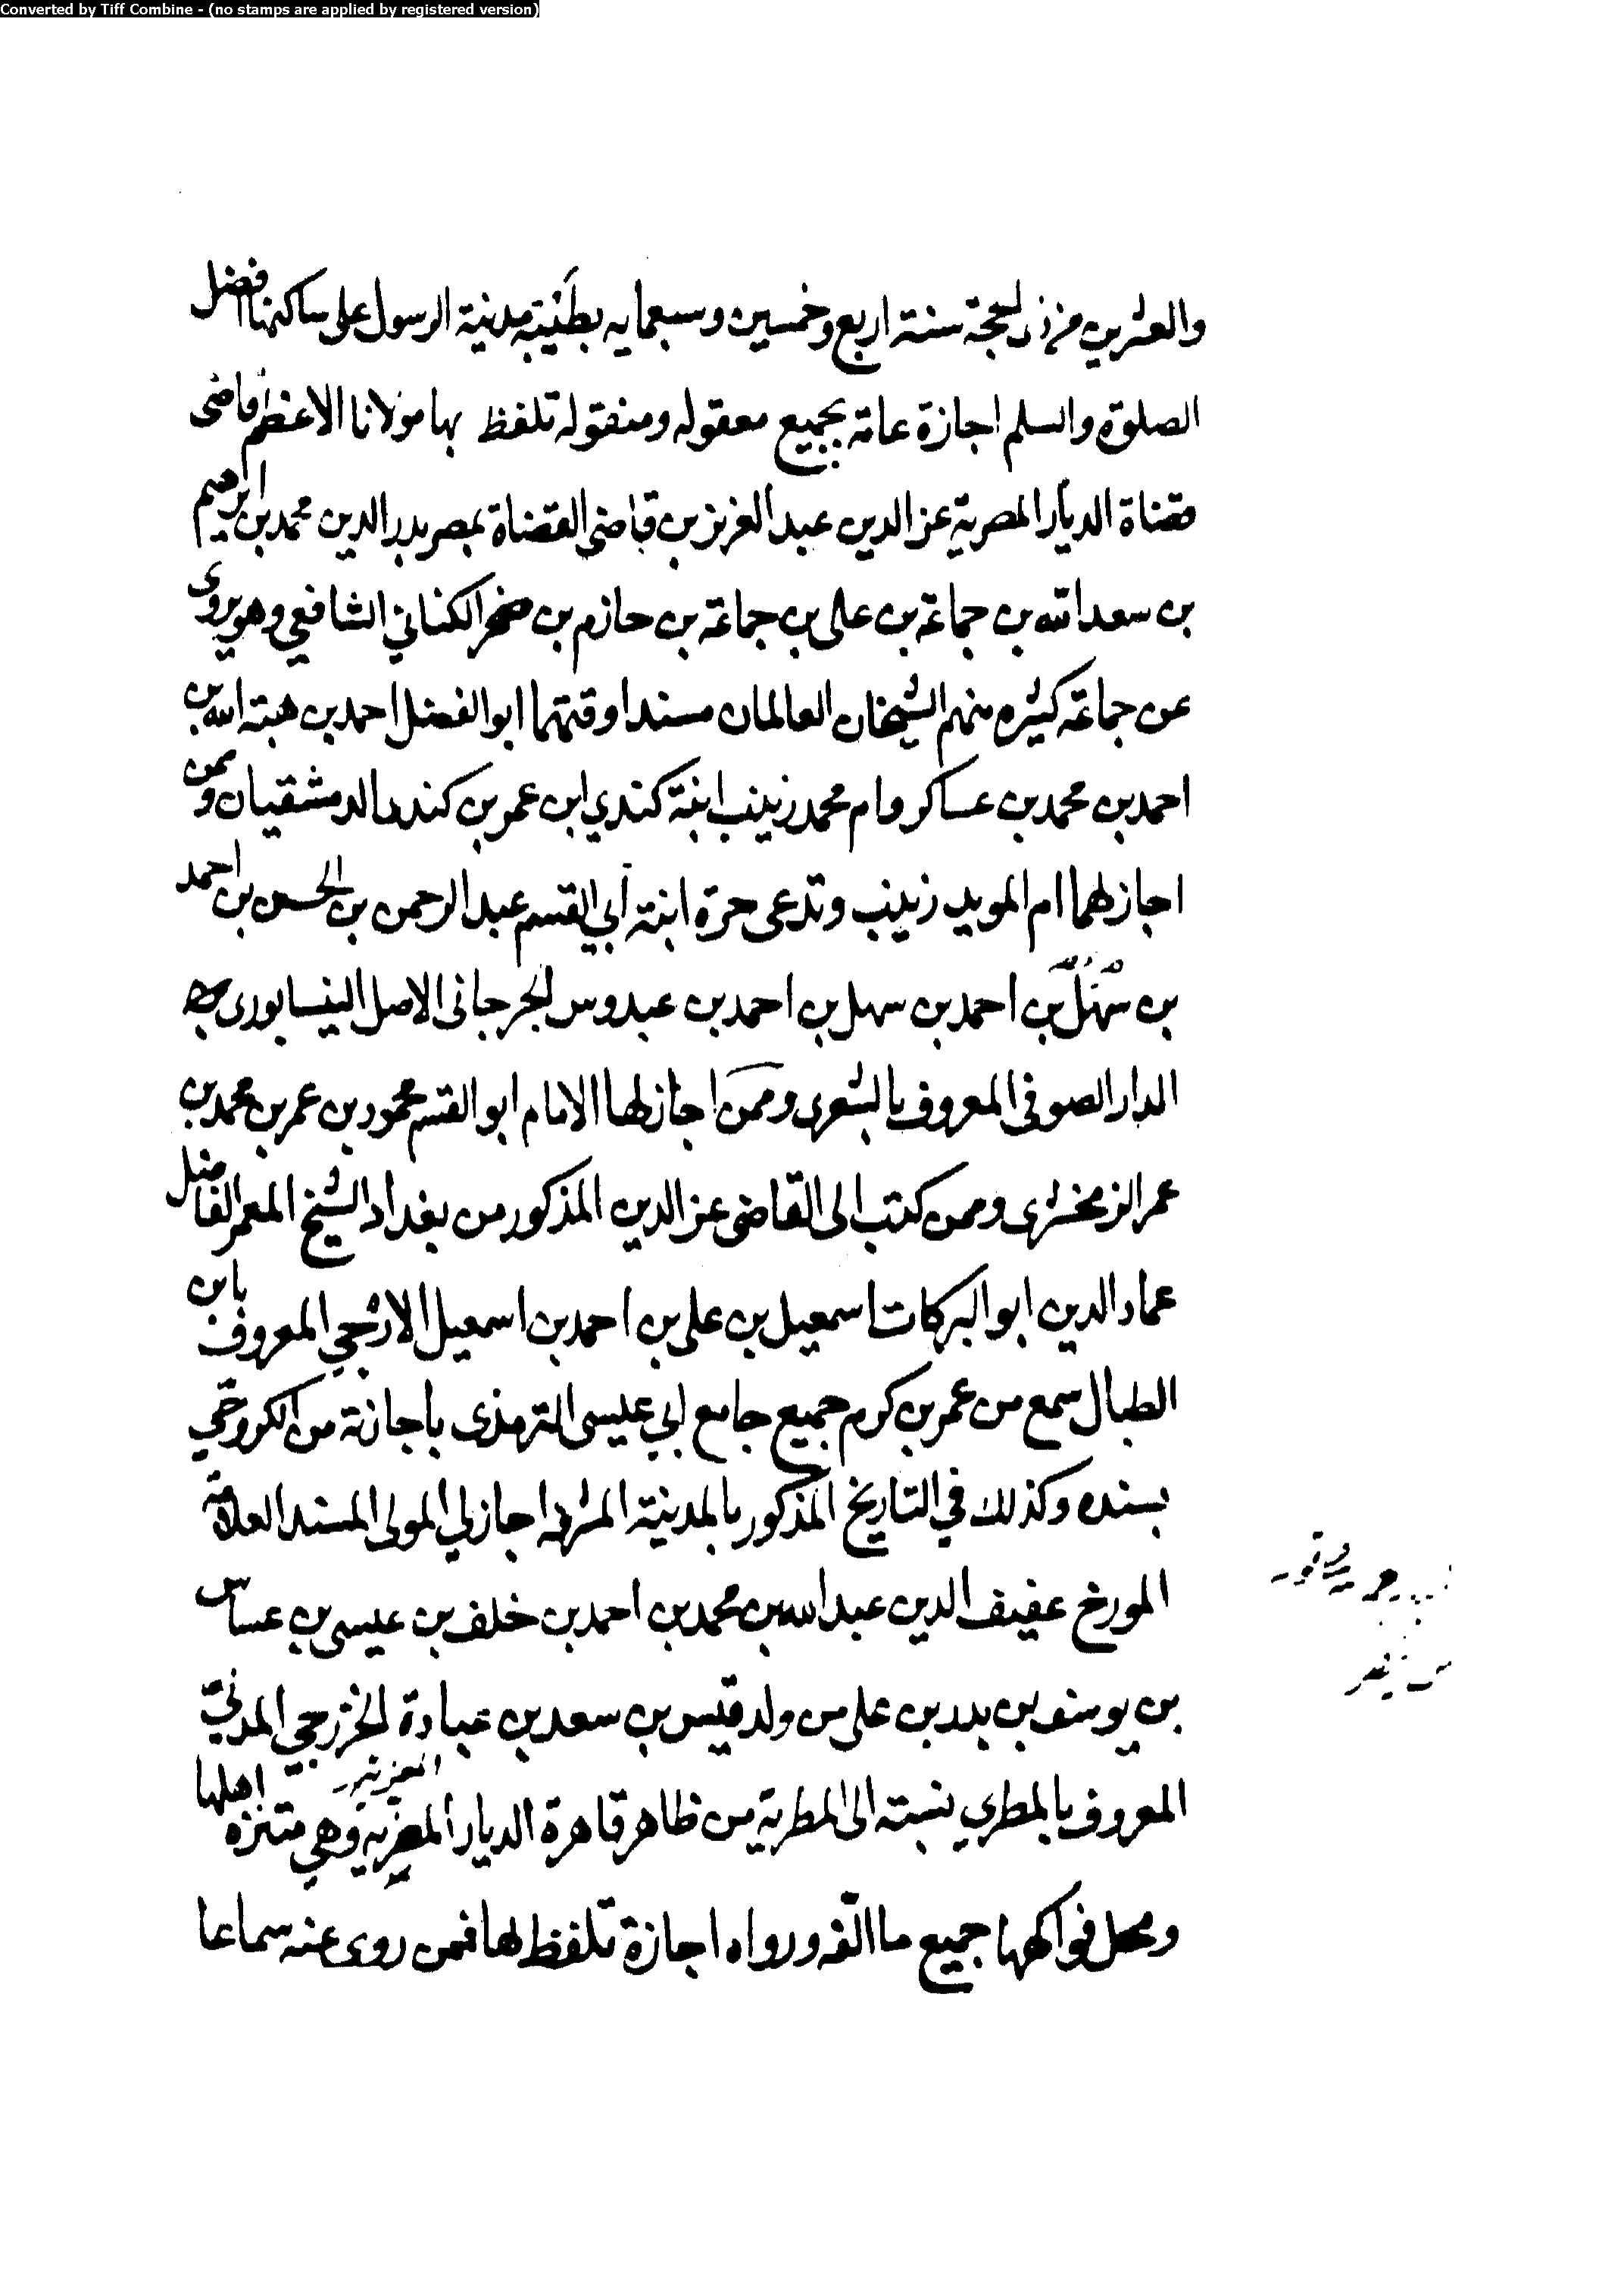 Converted by Tiff Combine - (no stamps are applied by registered version)
والعشرين من ذي الحجة سنة اربع وخمسين وسبعمايه بطَيْبة مدينة الرسول على ساكنها افضل
الصلوة والسلم اجازة عامة بجميع معقوله ومنقوله تلفظ بها مولانا الاعظم قاضى
قضاة الديار المصرية عز الدين عبد العزيز بن قاضى القضاة بمصر بدر الدين محمد بن ابرهيم
بن سعد الله بن جماعة بن على بن جماعة بن حازم بن صخر الكناني الشافعي وهو يروى
عن جماعة كثيره منهم الشيخان العالمان مسندا وقتهما ابو الفضل احمد بن هبة الله بن
احمد بن محمد بن عساكر وام محمد زينب ابنة كندي ابن عمر بن كندى الدمشقيان وممن
اجاز لهما ام المويد زينب وتدعى حرة ابنة أبي القسم عبد الرحمن بن الحسن بن احمد
بن سَهْل بن احمد بن سهل بن احمد بن عبدوس الجرجانى الاصل النيسابورى
الدار الصوفى المعروف بالشعرى وممن اجاز لها الامام ابو القسم محمود بن عمر بن محمد بن
عمر الزمخشرى وممن كتب الى القاضى عز الدين المذكور من بغداد الشيخ المعمر الفاضل
عماد الدين ابو البركات اسمعيل بن على بن احمد بن اسمعيل الازجي المعروف بابن
الطبال سمع من عمر بن كرم جميع جامع ابي عيسى الترمذى باجازة من الكروخي
بسنده وكذلك في التاريخ المذكور بالمدينة المشرفه اجاز لي المولى المسند العلامة
المورخ عفيف الدين عبد الله بن محمد بن احمد بن خلف بن عيسى بن عساس
بن يوسف بن بدر بن على من ولد قيس بن سعد بن عبادة الخزرجي المدني
المعروف بالمطري نسبته الى المطرية من ظاهر قاهرة الديار المصريه وهي متنزه اهلها
ومحل فواكهها جميع ما الفه ورواه اجازة تلفظ لها فمن روى عنه سماعا